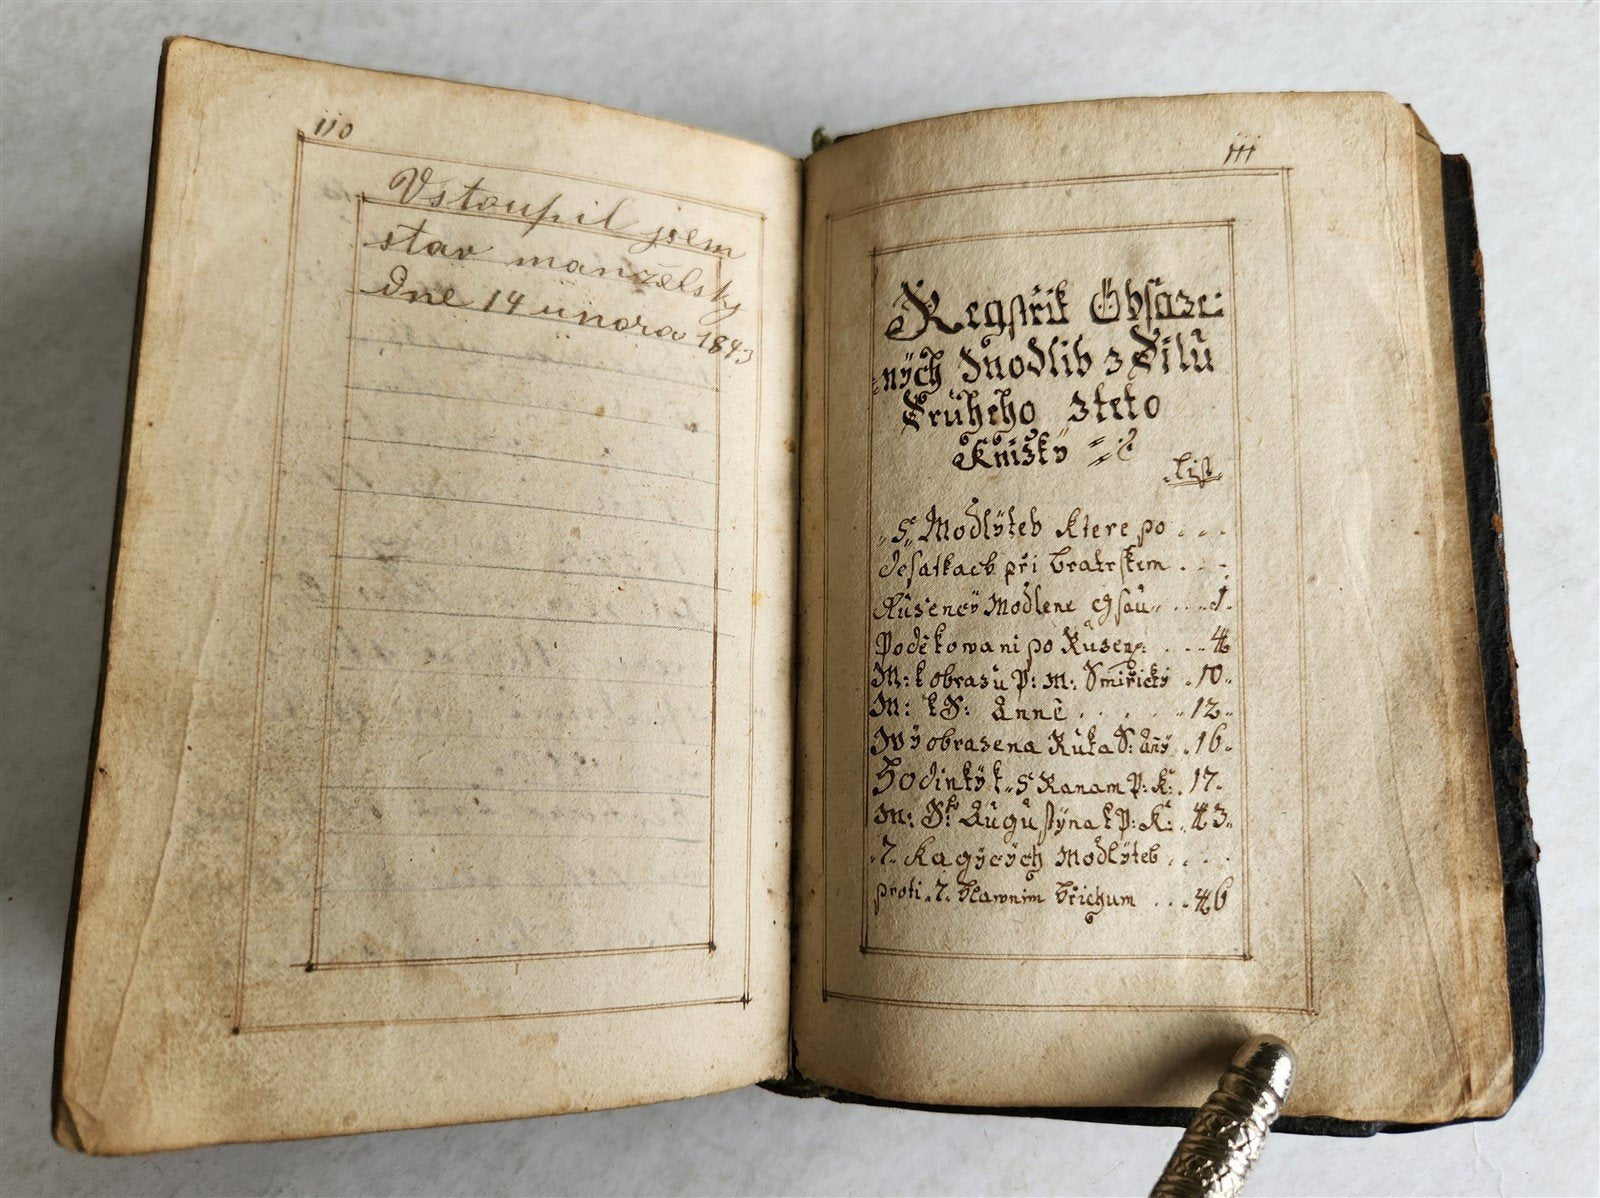 110
Vstoupil jsem
stav manželský
dne 14 února 1843
111
Regstřik Obsaze:
ných Modlib z Dilů
Druheho z teto
Knizky
List
„5„ Modlÿteb ktere po . . .
desatkach při bratrskem . . .
Růsencÿ Modlene gsau„ . . . 1.
Poděkowani po Růsen: . . . 4
M: k obrazu P: M: Smiřickÿ . 10.
M: k S: Anně . . . . . 12.
Wÿobrazena Ruka S: Anÿ . 16.
Hodinkÿ k „5 Ranam P: K: . 17.
M: S: Augustÿna k P: K: . 43.
„7„ Kagÿcÿch Modlÿteb . . . .
proti „7„ hlawnim hřichum . . . 46